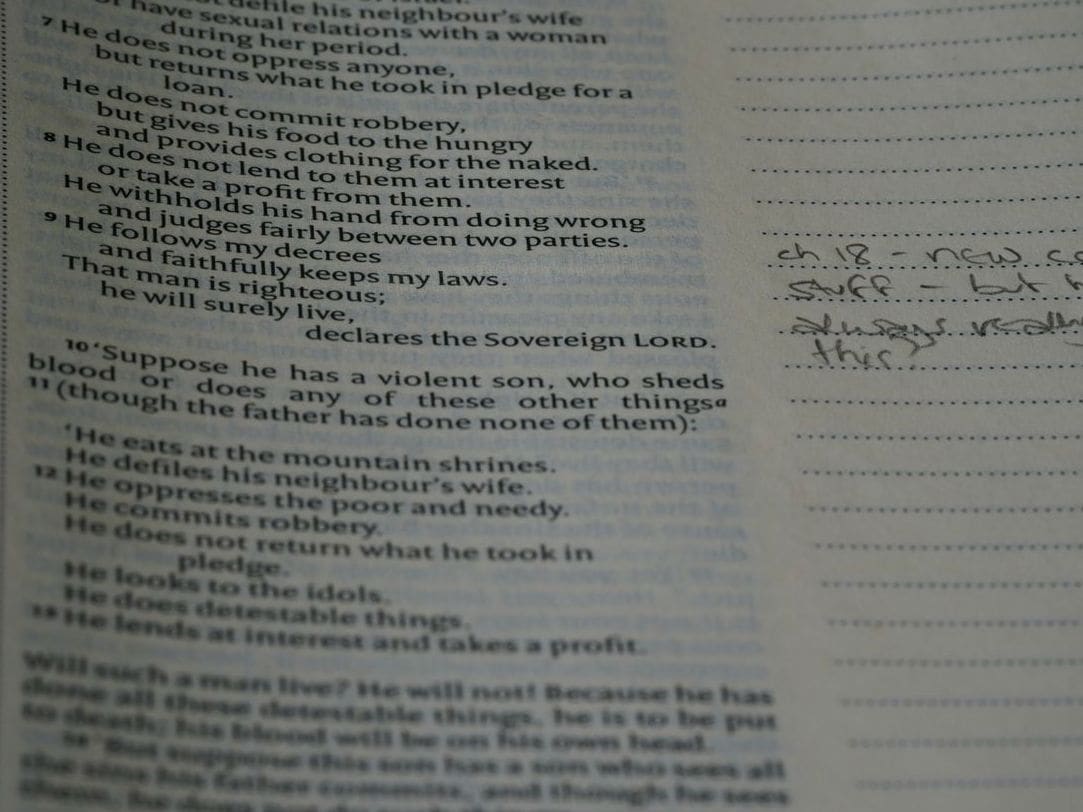 his neighbour's wife
have sexual relations with a woman
during her period.
7 He does not oppress anyone,
but returns what he took in pledge for a
loan.
He does not commit robbery,
but gives his food to the hungry
and provides clothing for the naked.
8 He does not lend to them at interest
or take a profit from them.
He withholds his hand from doing wrong
and judges fairly between two parties.
9 He follows my decrees
and faithfully keeps my laws.
That man is righteous;
he will surely live,
declares the Sovereign LORD.
10 'Suppose he has a violent son, who sheds
blood or does any of these other thingsa
11 (though the father has done none of them):
'He eats at the mountain shrines.
He defiles his neighbour's wife.
12 He oppresses the poor and needy.
He commits robbery.
He does not return what he took in
pledge.
He looks to the idols.
He does detestable things.
13 He lends at interest and takes a profit.
Will such a man live? He will not! Because he has
done all these detestable things, he is to be put
to death; his blood will be on his own head.
14 'But suppose this son has a son who sees all
the sins his father commits, and though he sees
ch 18 - new
stuff - but
always really
this?